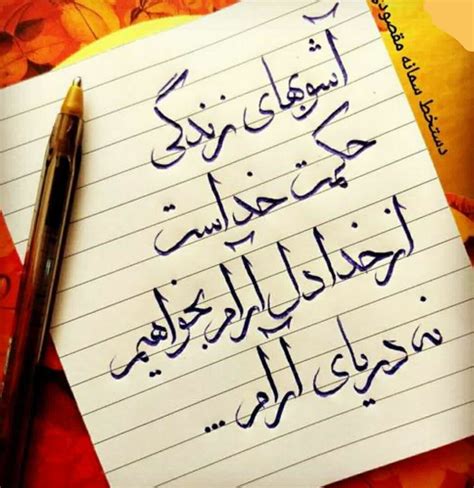 آشوبهای زندگی
حکمت خداست
از خدا دل آرام بخواهیم
نه دریای آرام ...
دستخط سمانه مقصودی